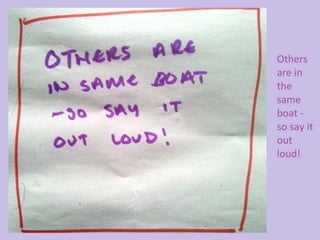 OTHERS ARE
IN SAME BOAT
- SO SAY IT
OUT LOUD!
Others
are in
the
same
boat -
so say it
out
loud!